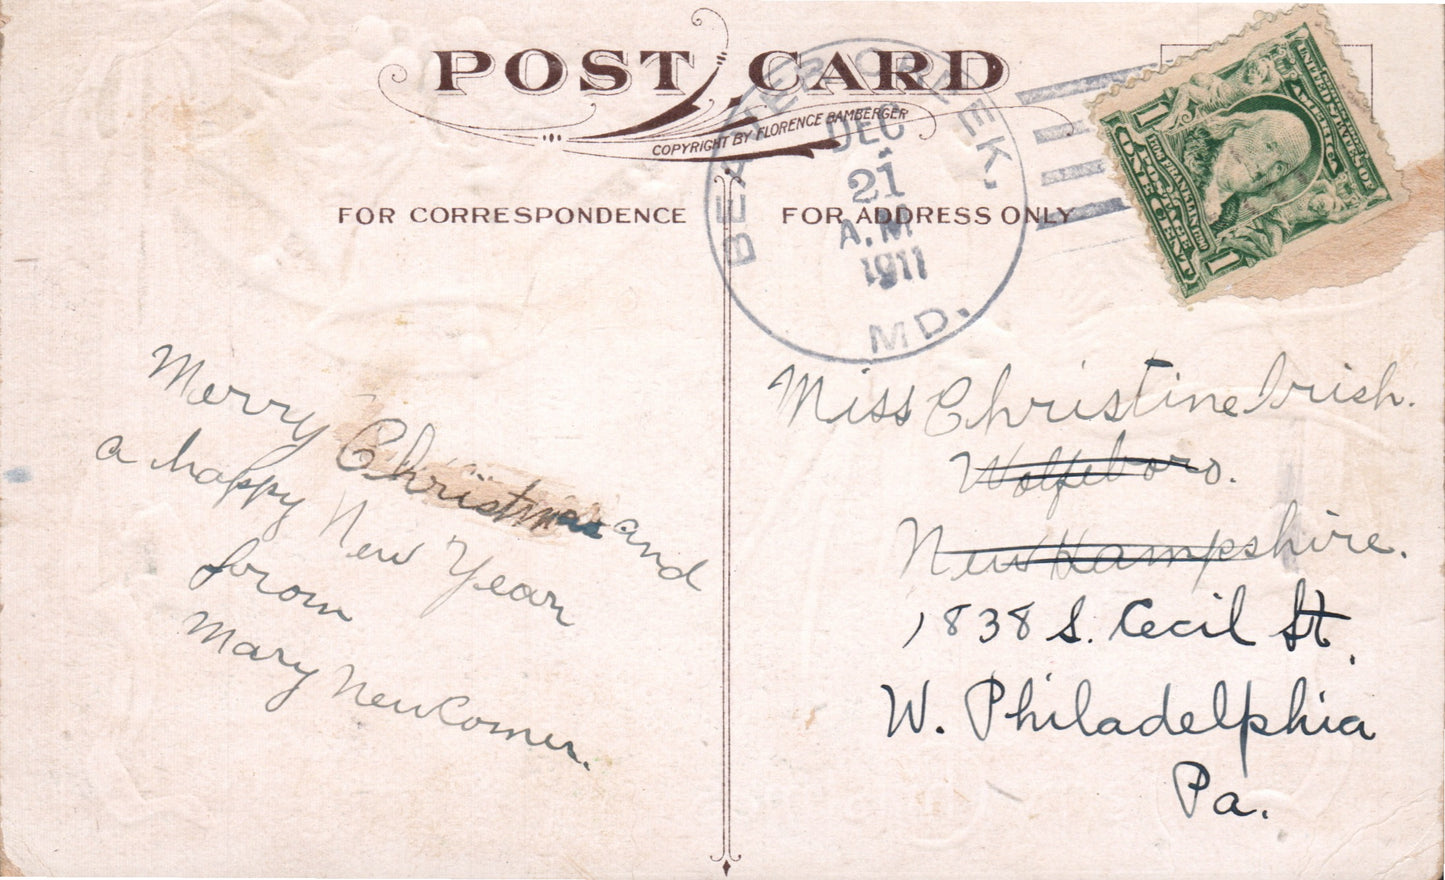 POST CARD
COPYRIGHT BY FLORENCE BAMBERGER
FOR CORRESPONDENCE
FOR ADDRESS ONLY
BEAVER CREEK,
DEC
21
A.M
1911
MD.
UNITED STATES OF AMERICA
1
1
BENJ. FRANKLIN
POSTAGE
ONE CENT
Merry Christmas and
a happy New Year
from
Mary Newcomer.
Miss Christine Irish.
Wolfeboro.
New Hampshire.
1838 S. Cecil St.
W. Philadelphia
Pa.